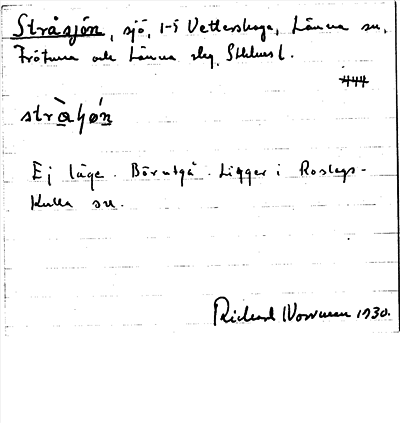 Stråsjön, sjö, 1-5 Vettershaga, Länna sn,
Frötuna och Länna skg, Sthlms l.
stràʃø´n
Ej läge. Bör utgå. Ligger i Roslags-
Kulla sn.
Richard 1930.